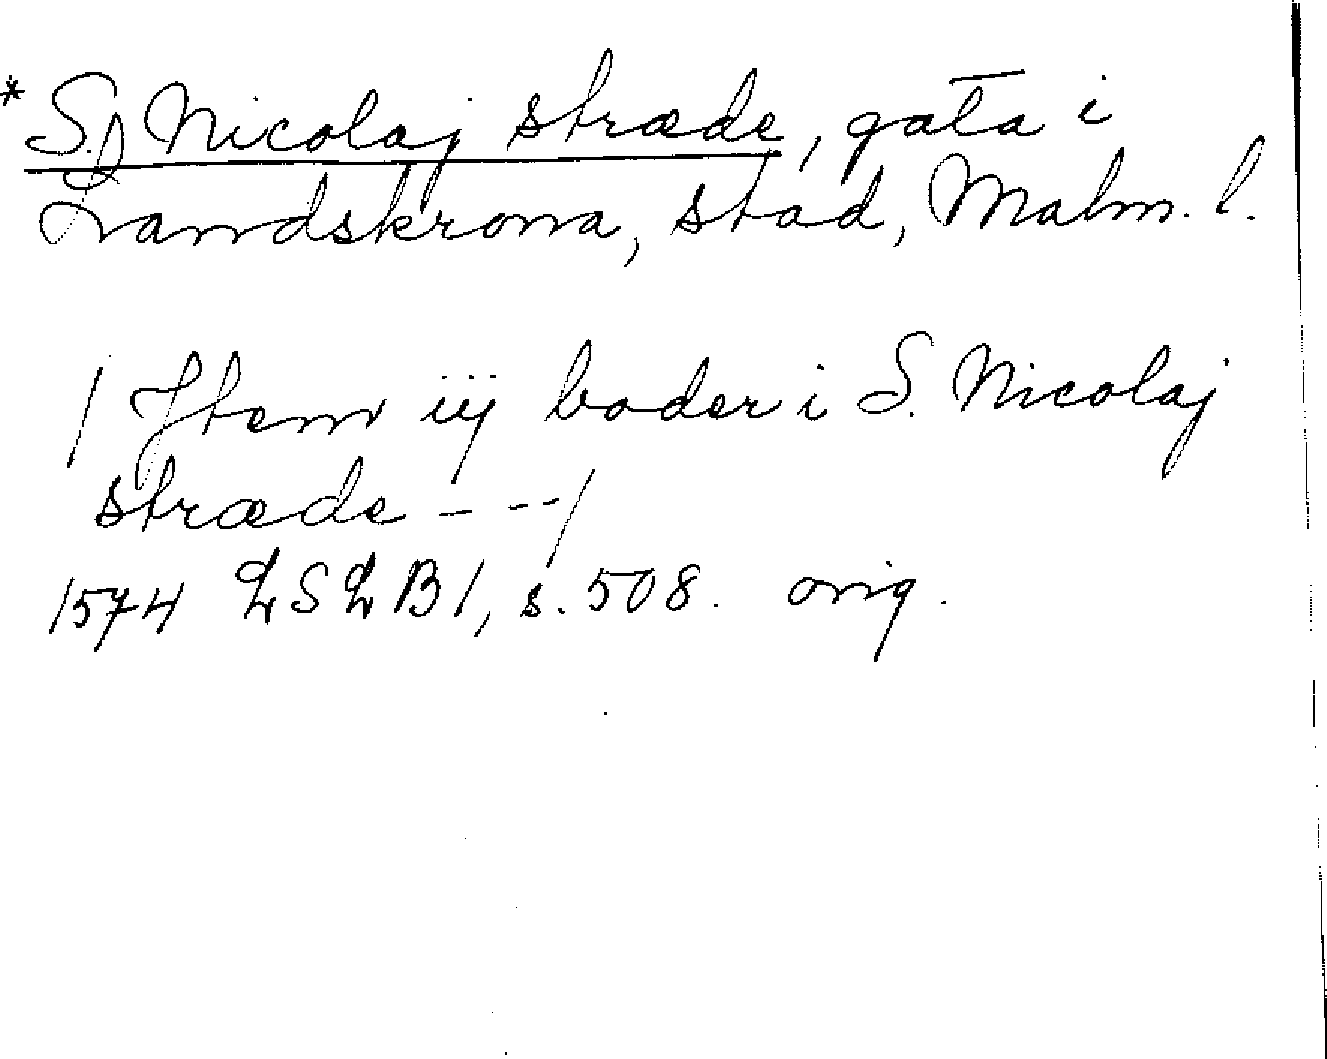 * S. Nicolaj stræde, gata i
Landskrona, stad, Malm. l.
/ Jtem iij boder i S. Nicolaj
stræde - - - /
1574 LSLB 1, s. 508. orig.